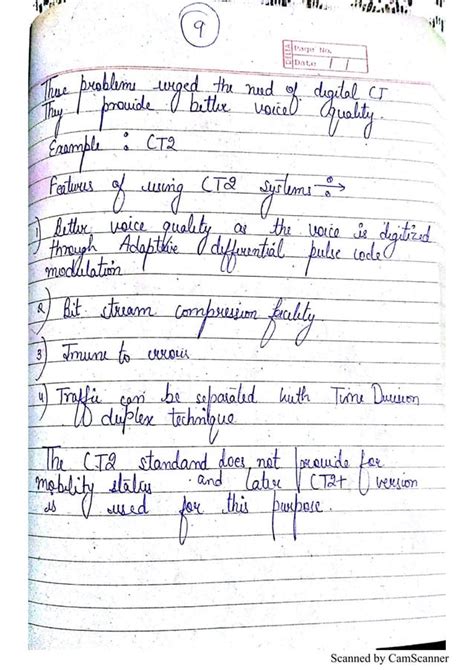 9
Page No.
Date
These problems urged the need of digital CT
They provide better voice quality.
Example : CT2
Features of using CT2 systems :→
1) Better voice quality as the voice is digitized
through Adaptive differential pulse code
modulation
2) Bit stream compression facility.
3) Imune to errors
4) Traffic can be separated with Time Division
duplex technique
The CT2 standand does not provide for
mobility status and later CT2+ version
is used for this purpose.
Scanned by CamScanner